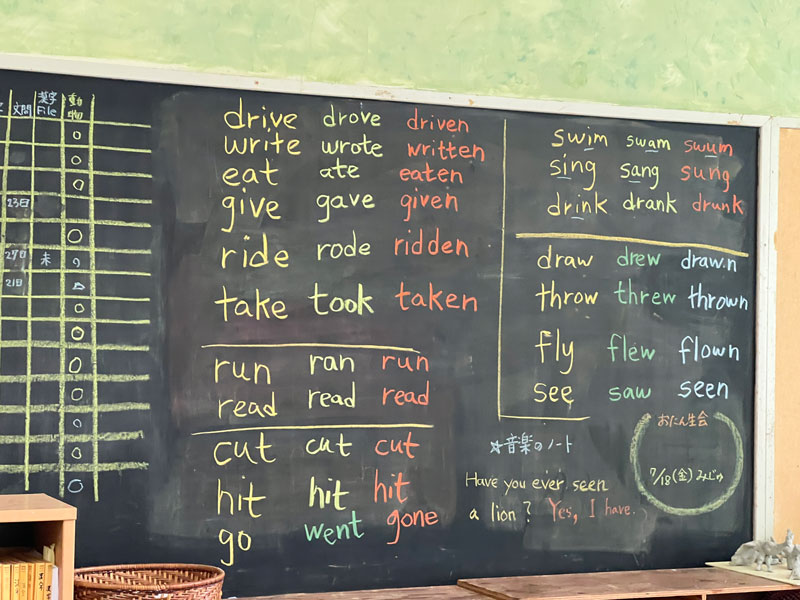 文問 漢字File 動物
23日
27日 未
21日
drive drove driven
write wrote written
eat ate eaten
give gave given
ride rode ridden
take took taken
run ran run
read read read
cut cut cut
hit hit hit
go went gone
swim swam swum
sing sang sung
drink drank drunk
draw drew drawn
throw threw thrown
fly flew flown
see saw seen
☆音楽のノート
Have you ever seen
a lion? Yes, I have.
おたん生会
7/18(金)